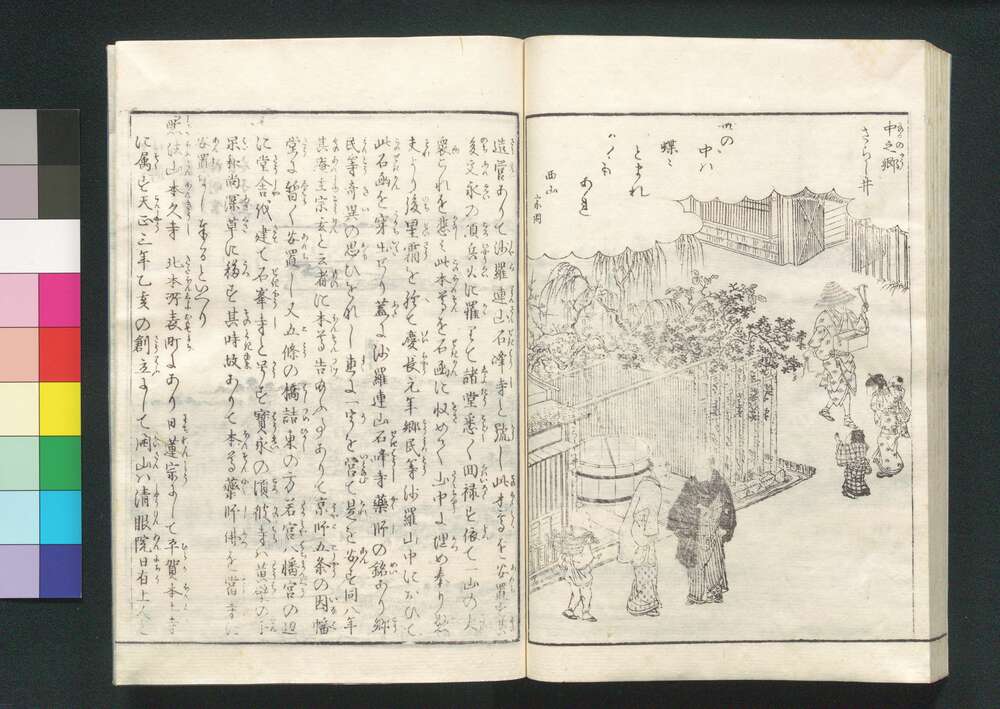 中之郷
さらし井
世の
中は
蝶々
とまれ
かくも
あれ
西山
宗因
造営ありて沙羅連山石峰寺と号し此本尊を安置せ
後文永の頃兵火に罹りて諸堂悉く回禄す依て一山の大
衆これを悲み此本尊を石函に収めて山中に埋め奉り
夫より後星霜を経て慶長元年郷民等沙羅山中において
此石函を穿出せり蓋に沙羅連山石峰寺薬師の銘あり郷
民等奇異の思ひをなし更に一宇を営て是を安す同八年
其庵主宗玄と云者に本尊告あるありて京師五条の因幡
堂に暫く安置し又五條の橋詰東の方若宮八幡宮の辺
に堂舎を建て石峯寺と号す宝永の頃
呆和尚深草に移す其時故ありて本尊薬師佛を當寺に
安置なし奉るといへり
照法山本久寺 北本所表町にあり日蓮宗にして平賀本土寺
に属す天正三年乙亥の創立にして開山は清眼院日有上人